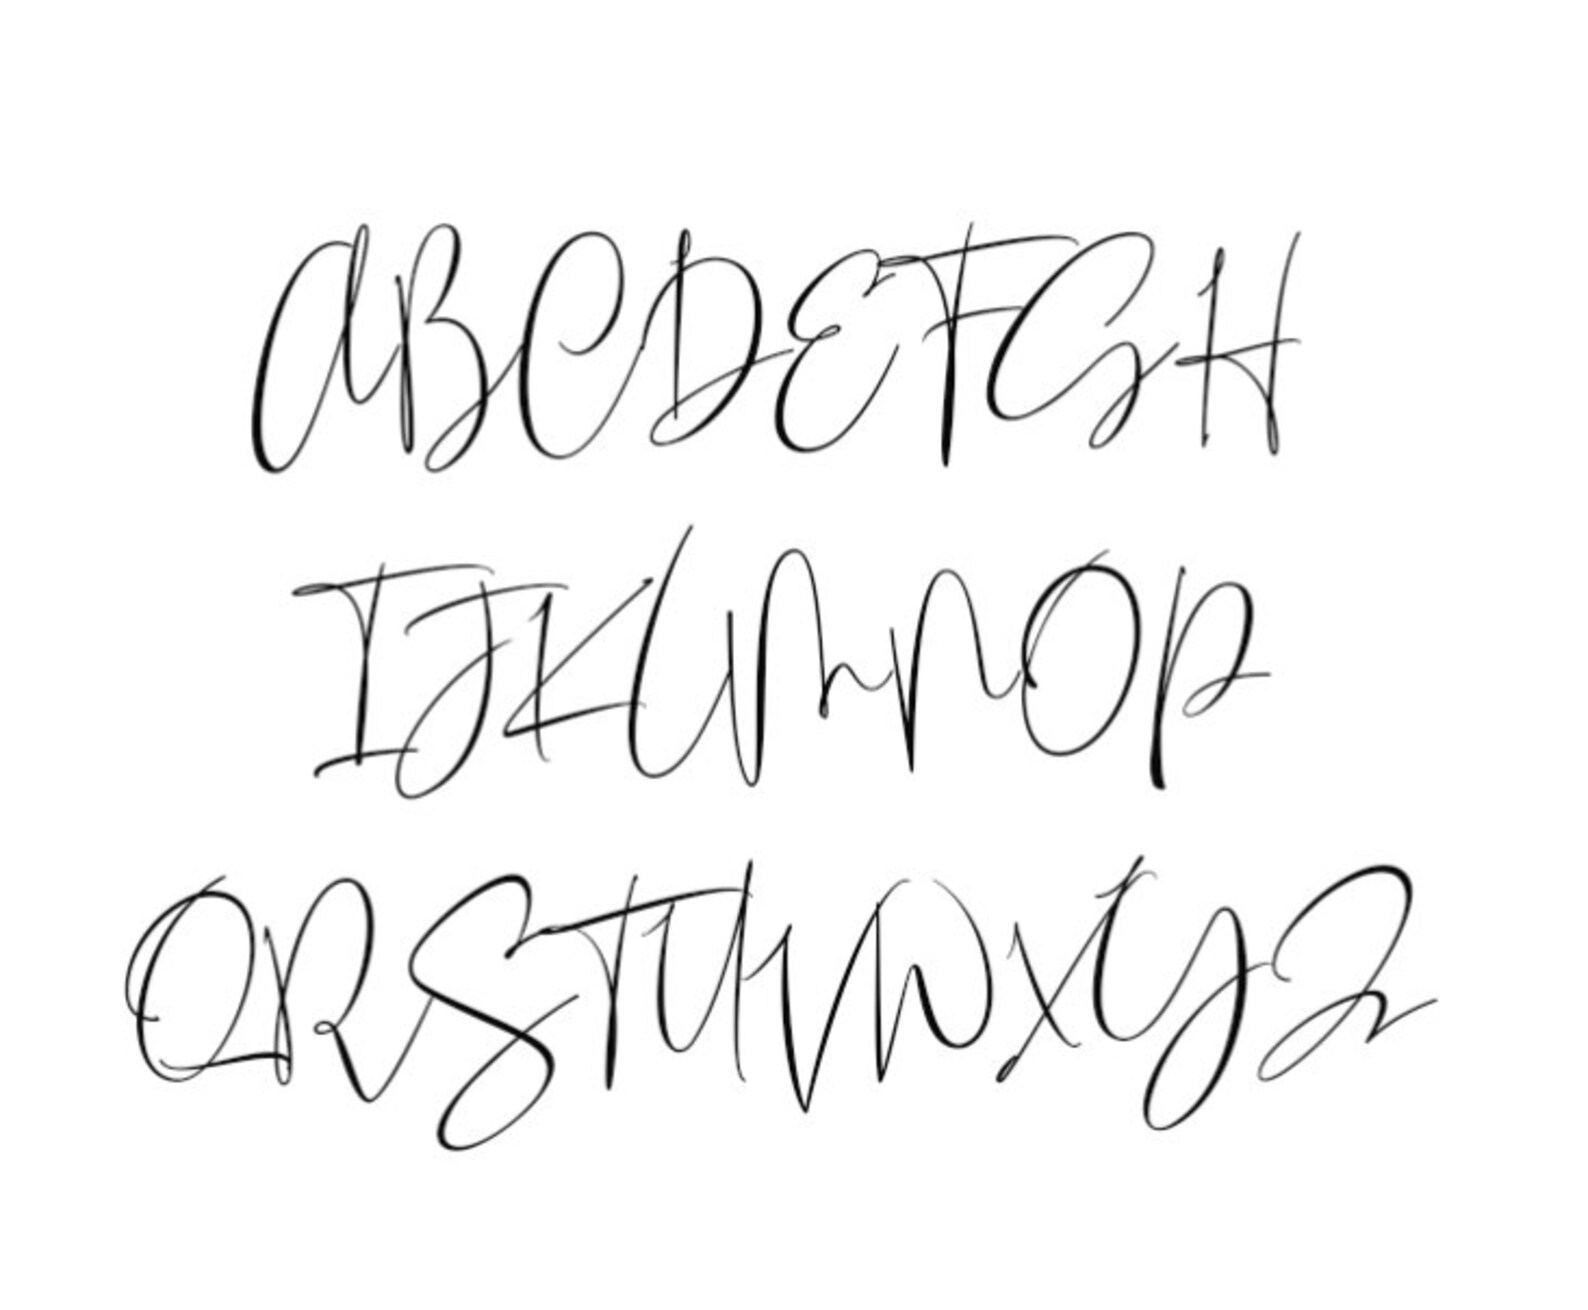 ABCDEFGH
IJKLMNOP
QRSTUVWXYZ